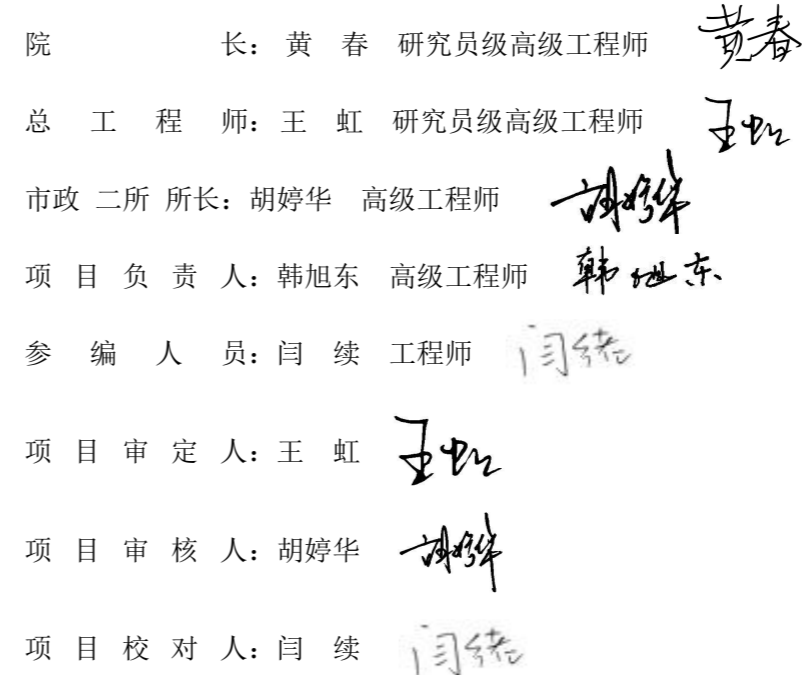 院长：黄春 研究员级高级工程师 黄春
总工程师：王虹 研究员级高级工程师 王虹
市政二所所长：胡婷华 高级工程师 胡婷华
项目负责人：韩旭东 高级工程师 韩旭东
参编人员：闫续 工程师 闫续
项目审定人：王虹 王虹
项目审核人：胡婷华 胡婷华
项目校对人：闫续 闫续